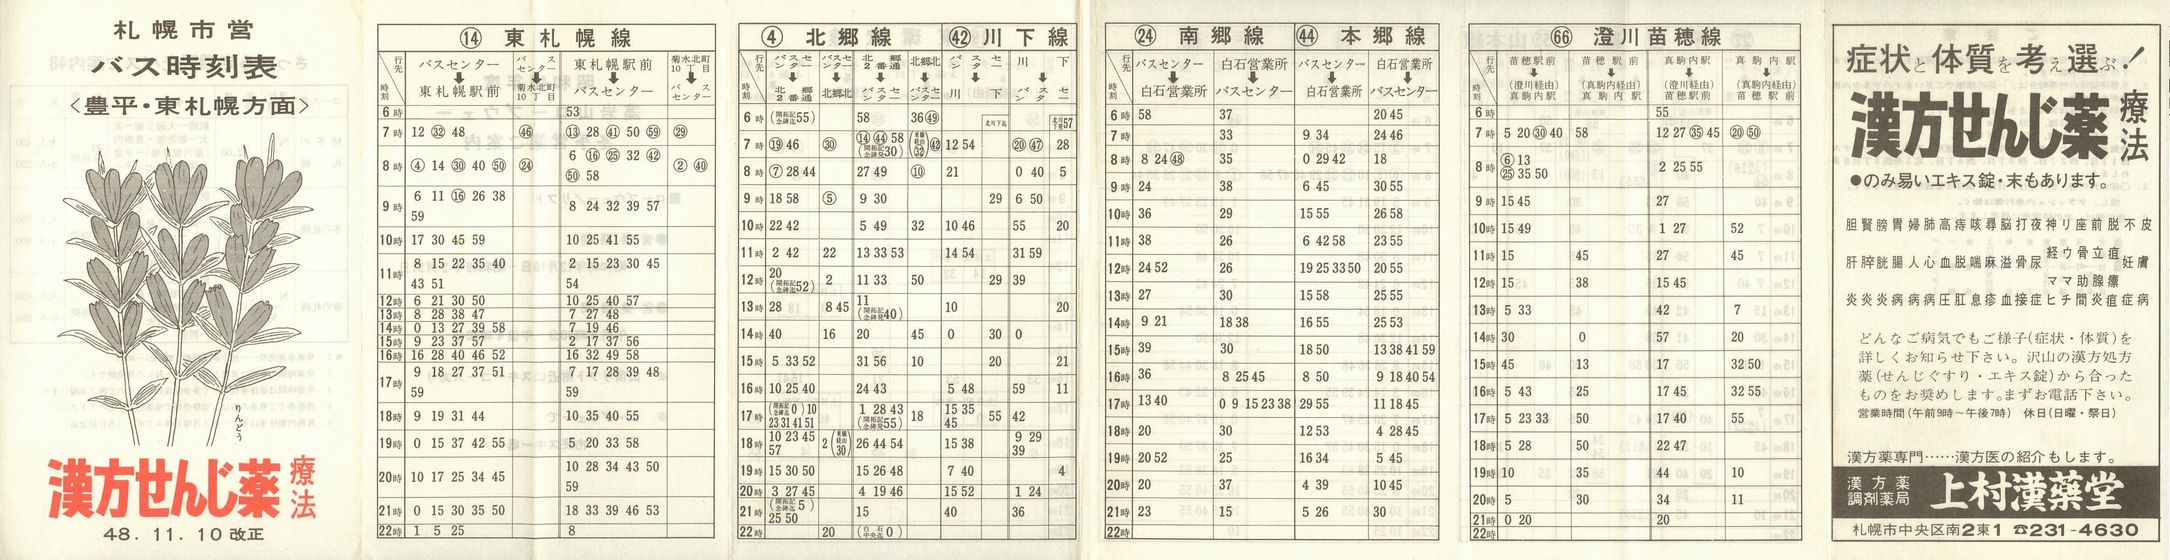 札幌市営
バス時刻表
<豊平・東札幌方面>
りんどう
漢方せんじ薬 療法
48. 11. 10 改正
⑭ 東札幌線
行先 時刻 バスセンター↓東札幌駅前 バスセンター↓菊水北町10丁目 東札幌駅前↓バスセンター 菊水北町10丁目↓バスセンター
6時 53
7時 12 ㉜ 48 ㊻ ⑬ 28 ㊶ 50 59 ㉙
8時 ④ 14 ㉚ 40 ㊿ ㉔ 6 ⑯ ㉕ 32 ㊷ ② ㊵
㊿ 58
9時 6 11 ⑯ 26 38 8 24 32 39 57
59
10時 17 30 45 59 10 25 41 55
11時 8 15 22 35 40 2 15 23 30 45
43 51 54
12時 6 21 30 50 10 25 40 57
13時 8 28 38 47 7 27 48
14時 0 13 27 39 58 7 19 46
15時 9 23 37 57 2 17 37 56
16時 16 28 40 46 52 16 32 49 58
17時 9 18 27 37 51 7 17 28 39 48
59 59
18時 9 19 31 44 10 35 40 55
19時 0 15 37 42 55 5 20 33 58
20時 10 17 25 34 45 10 28 34 43 50
59
21時 0 15 30 35 50 18 33 39 46 53
22時 1 5 25 8
④ 北郷線 ㊷ 川下線
行先 時刻 バスセンター↓北郷2番通 バスセンター↓北郷北 北郷2番通↓バスセンター 北郷北↓バスセンター バスセンター↓川下 川下↓バスセンター
6時 (開拓記念碑迄55) 58 36 ㊾ 北川下迄 57
7時 ⑲ 46 ㉚ ⑭ ㊹ 58 (開拓記念碑発30) ㊷ 12 54 ⑳ ㊼ 28
8時 ⑦ 28 44 27 49 ⑩ 21 0 40 5
9時 18 58 ⑤ 9 30 29 6 50
10時 22 42 5 49 32 10 46 55 20
11時 2 42 22 13 33 53 14 54 31 59
12時 20 (開拓記念碑迄52) 2 11 33 50 29 39
13時 28 8 45 11 (開拓記念碑発40) 10 20
14時 40 16 20 45 0 30 0
15時 5 33 52 31 56 10 20 21
16時 10 25 40 24 43 5 48 59 11
17時 (開拓記念碑迄0) 10 1 28 43 18 15 35 55 42
23 31 41 51 (開拓記念碑発55) 45
18時 10 23 45 2 (東橋経由30) 26 44 54 15 38 9 29
57 39
19時 15 30 50 15 26 48 7 40 4
20時 3 27 45 4 19 46 15 52 1 24
21時 (開拓記念碑迄5) 15 40 36
25 50
22時 20 (白石中央迄0)
㉔ 南郷線 ㊹ 本郷線
行先 時刻 バスセンター↓白石営業所 白石営業所↓バスセンター バスセンター↓白石営業所 白石営業所↓バスセンター
6時 58 37 20 45
7時 33 9 34 24 46
8時 8 24 ㊽ 35 0 29 42 18
9時 24 38 6 45 30 55
10時 36 29 15 55 26 58
11時 38 26 6 42 58 23 55
12時 24 52 26 19 25 33 50 20 55
13時 27 30 15 58 25 55
14時 9 21 18 38 16 55 25 53
15時 39 30 18 50 13 38 41 59
16時 36 8 25 45 8 50 9 18 40 54
17時 13 40 0 9 15 23 38 29 55 11 18 45
18時 20 30 12 53 4 28 45
19時 20 52 25 16 34 5 45
20時 20 37 4 39 10 45
21時 23 15 5 26 30
22時
66 澄川苗穂線
行先 時刻 苗穂駅前↓(澄川経由)真駒内駅 苗穂駅前↓(真駒内経由)真駒内駅 真駒内駅↓(澄川経由)苗穂駅前 真駒内駅↓(真駒内経由)苗穂駅前
6時 55
7時 5 20 ㉚ 40 58 12 27 ㉟ 45 ⑳ ㊿
8時 ⑥ 13 2 25 55
㉕ 35 50
9時 15 45 27
10時 15 49 1 27 52
11時 15 45 27 45
12時 15 38 15 45
13時 5 33 42 7
14時 30 0 57 20
15時 45 13 17 32 50
16時 5 43 25 17 45 32 55
17時 5 23 33 50 17 40 55
18時 5 28 50 22 47
19時 10 35 44 10
20時 5 30 34 11
21時 0 20 20
22時
症状と体質を考え選ぶ!
漢方せんじ薬 療法
●のみ易いエキス錠・末もあります。
胆腎膀胃婦肺高痔咳尋脳打夜神リ座前脱不皮
肝膵胱腸人心血脱喘麻溢骨尿経ウ骨立疽妊膚
ママ助腺癢
炎炎炎病病病圧肛息疹血接症ヒチ間炎疽症病
どんなご病気でもご様子(症状・体質)を
詳しくお知らせ下さい。沢山の漢方処方
薬(せんじぐすり・エキス錠)から合った
ものをお奨めします。まずお電話下さい。
営業時間(午前9時〜午後7時) 休日(日曜・祭日)
漢方薬専門……漢方医の紹介もします。
漢方薬調剤薬局 上村漢薬堂
札幌市中央区南2東1 ☎231-4630